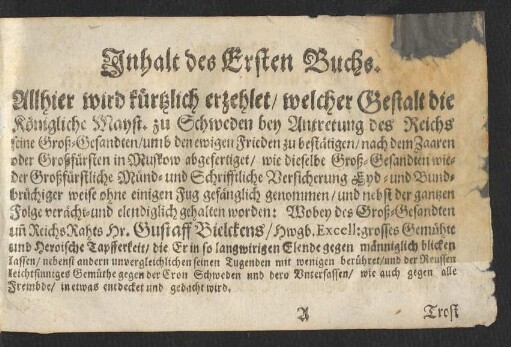 Inhalt des Ersten Buchs.
Allhier wird kürtzlich erzehlet/ welcher Gestalt die
Königliche Mayst. zu Schweden bey Antretung des Reichs
seine Groß-Gesandten/umb den ewigen Frieden zu bestätigen/ nach dem Zaaren
oder Großfürsten in Muskow abgefertiget/ wie dieselbe Groß-Gesandten wie-
der Großfürstliche Münd- und Schrifftliche Versicherung Eyd- und Bund-
brüchiger weise ohne einigen Fug gefänglich genommen/ und nebst der gantzen
Folge veracht- und elendiglich gehalten worden: Wobey des Groß-Gesandten
uñ ReichsRahts Hr. Gustaff Bielckens/ Hwgb. Excell: grosses Gemühte
und Heroische Tapfferkeit/ die Er in so langwirigen Elende gegen männiglich blicken
lassen/ nebenst andern unvergleichlichen seinen Tugenden mit wenigen berühret/und der Reussen
leichtsinniges Gemüthe gegen der Cron Schweden und dero Unterfassen/ wie auch gegen alle
Frembde/ in etwas entdecket und gedacht wird.
A Trost